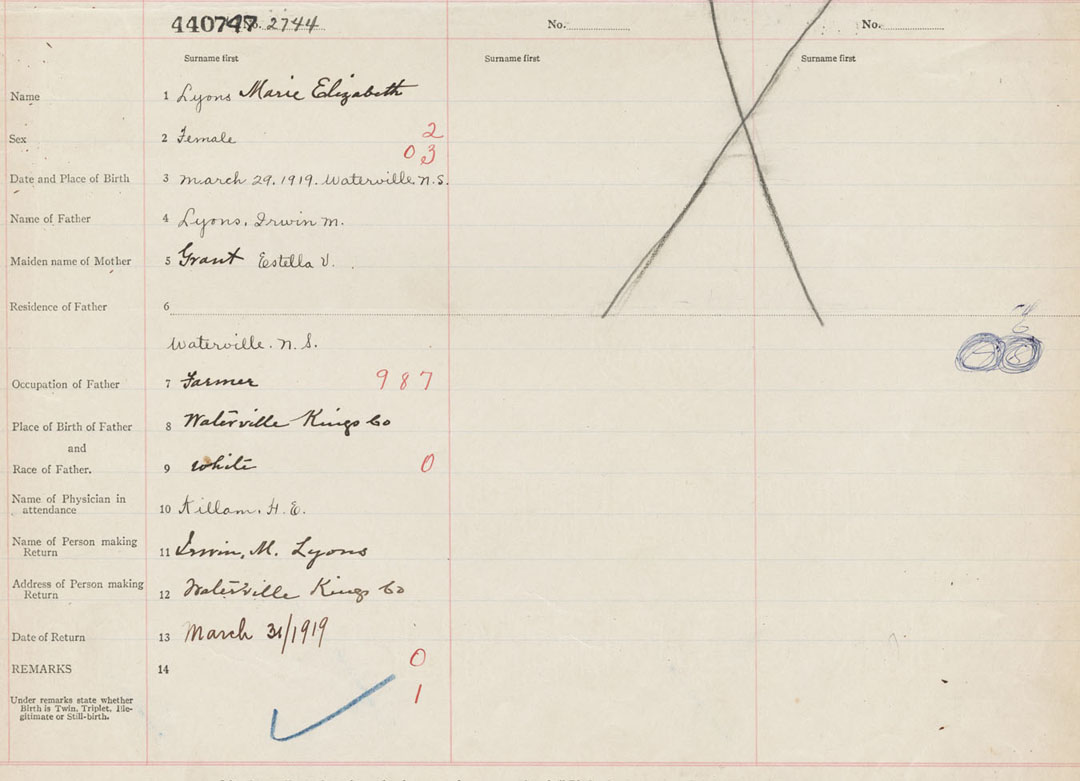 440747 No. 2744 No. No.
Surname first Surname first Surname first
Name 1 Lyons Marie Elizabeth
Sex 2 Female 2
03
Date and Place of Birth 3 March 29, 1919. Waterville. N.S.
Name of Father 4 Lyons, Irwin M.
Maiden name of Mother 5 Grant Estella V.
Residence of Father 6
Waterville. N.S.
Occupation of Father 7 Farmer 987
Place of Birth of Father 8 Waterville Kings Co
and
Race of Father. 9 white 0
Name of Physician in
attendance 10 Killam, H. E.
Name of Person making
Return 11 Irwin, M. Lyons
Address of Person making
Return 12 Waterville Kings Co
Date of Return 13 March 31/1919
0
REMARKS 14
1
Under remarks state whether
Birth is Twin, Triplet, Ille-
gitimate or Still-birth.